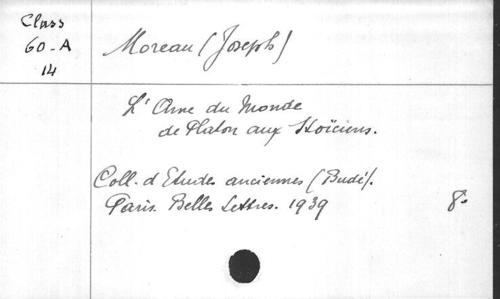 Class
60-A
14
Moreau (Joseph)
L'Ame du Monde
de Platon aux Stoïciens.
Coll. d'Etudes anciennes (Budé).
Paris. Belles Lettres. 1939
8°